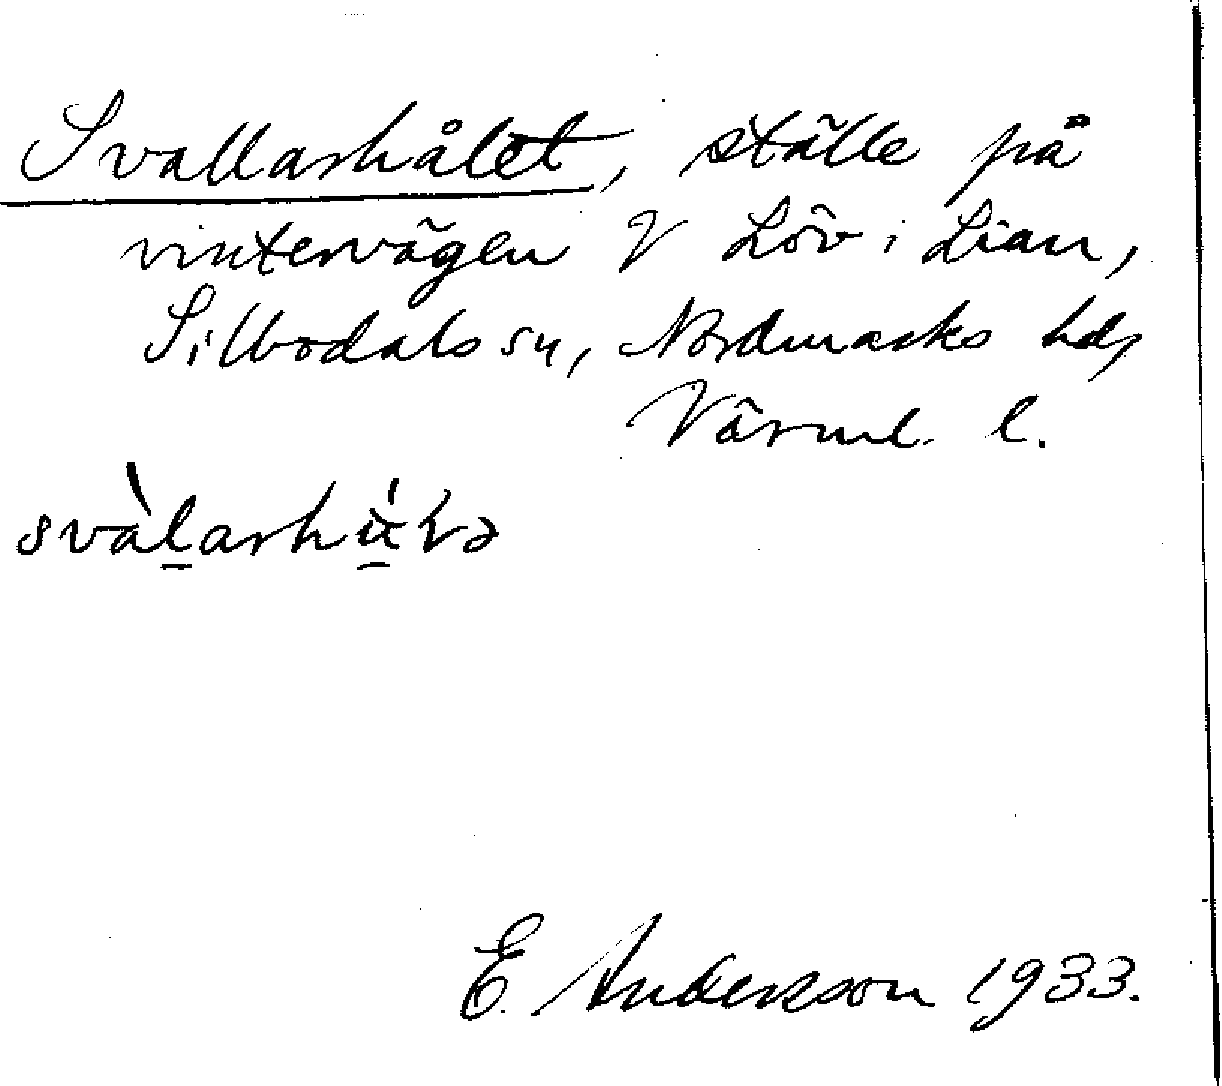 Svallarhålet, ställe på
vintervägen V Löv i Lian,
Silbodals sn, Nordmarks hd,
Värml. l.
svàl̲arhu̲
E. Andersson 1933.